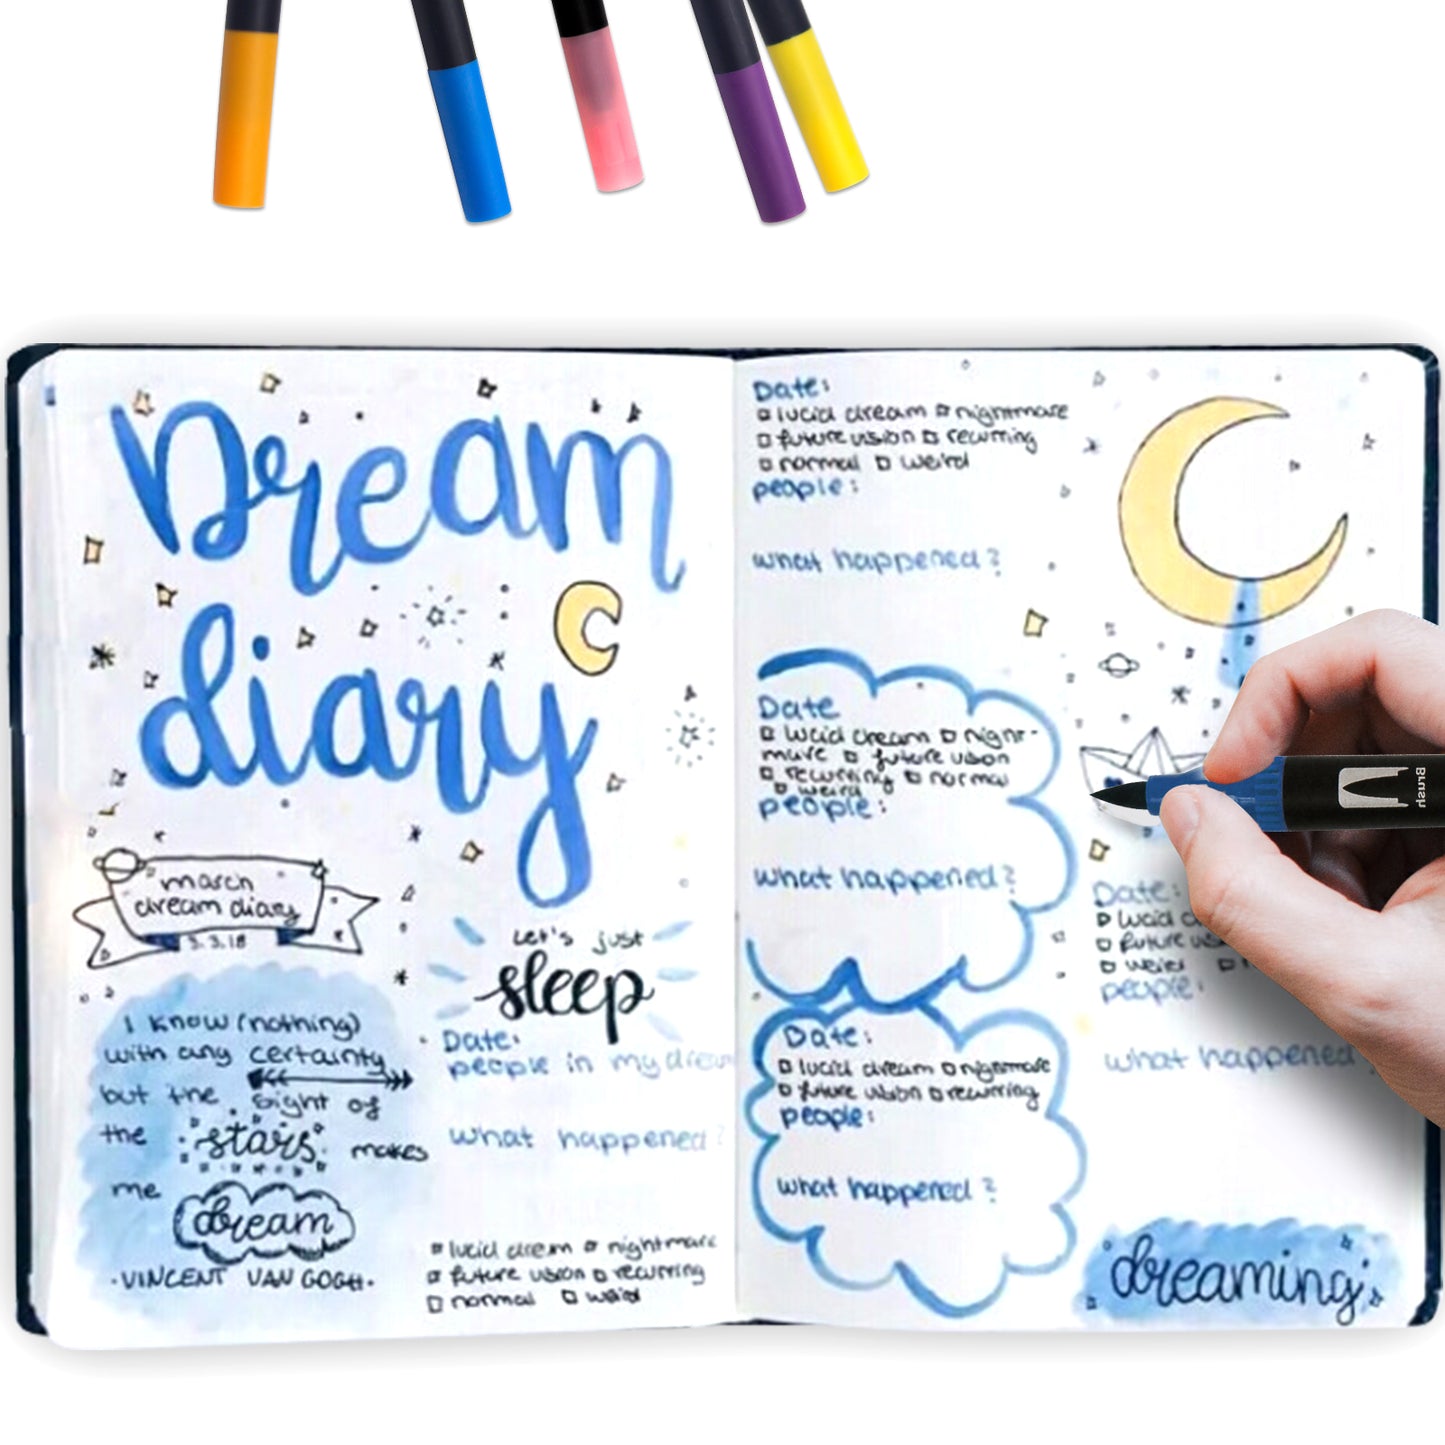 Dream
diary
march
dream diary
3.3.18
I know (nothing)
with any certainty
but the sight of
the stars makes
me dream
·VINCENT VAN GOGH·
Let's just
sleep
Date:
people in my dream
what happened?
lucid dream nightmare
future vision recurring
normal weird
Date:
lucid dream nightmare
future vision recurring
normal weird
people:
what happened?
Date
lucid dream night-
mare future vision
recurring normal
weird
people:
what happened?
Date:
lucid dream nightmare
future vision recurring
people:
what happened?
Date:
lucid
future
weird
people:
what happened
dreaming
Brush